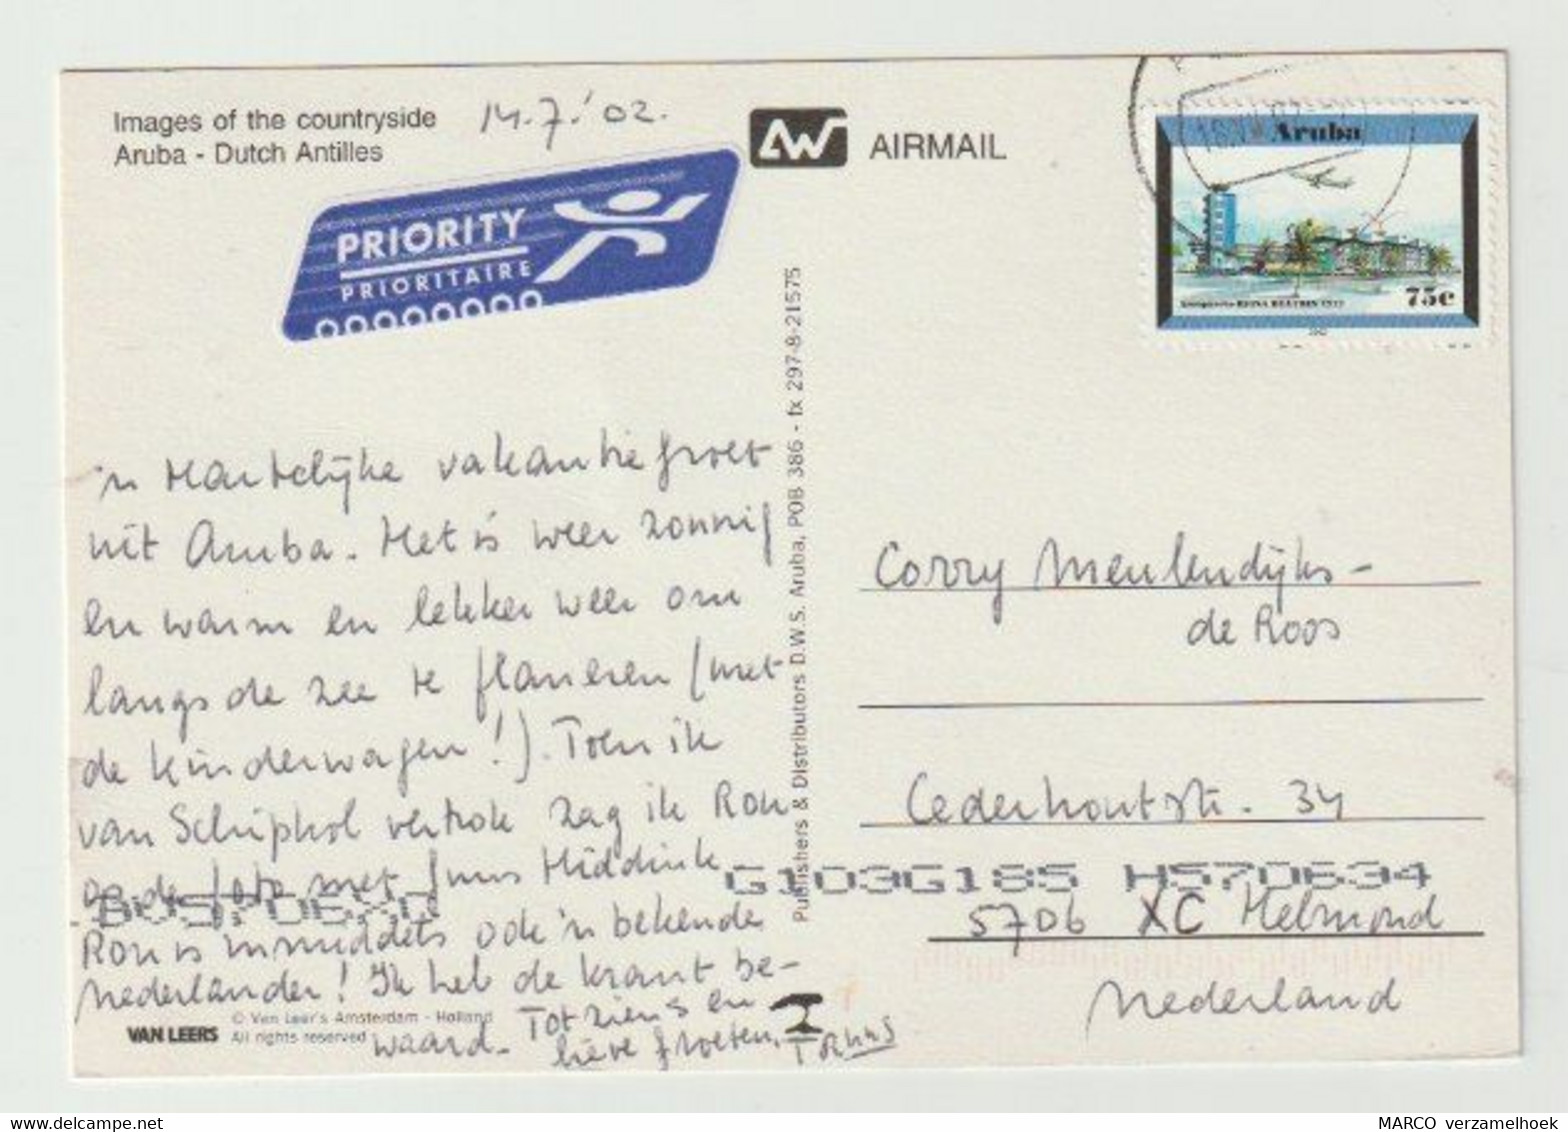 Images of the countryside
Aruba - Dutch Antilles
14.7.'02.
AW AIRMAIL
PRIORITY
PRIORITAIRE
Aruba
75c
'n Hartelijke vakantiegroet
uit Aruba. Het is weer zonnig
en warm en lekker weer om
langs de zee te flaneren (met
de kinderwagen!). Toen ik
van Schiphol vertrok zag ik Ron
op de foto met Guus Hiddink
Ron is inmiddels ook 'n bekende
Nederlander! Ik heb de krant be-
waard. Tot ziens en
lieve groeten,
Publishers & Distributors D.W.S. Aruba, POB 386 - fx 297-8-21575
Corry Meulendijks-
de Roos
Cederhoutstr. 34
G103G185 H570634
5706 XC Helmond
Nederland
VAN LEERS
© Van Leer's Amsterdam - Holland
All rights reserved
MARCO verzamelhoek